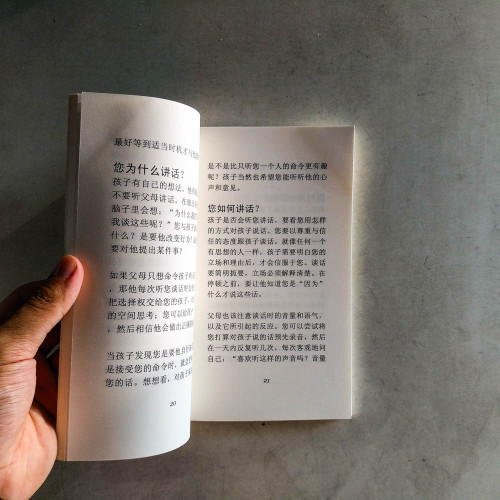 最好等到适当时机才与他
您为什么讲话?
孩子有自己的想法。他
不要听父母讲话。在
脑子里会想:“为什么
我谈这些呢?”您与孩
什么?是要他改变行
要对他提出某件事?
如果父母只想命令孩子
,那他每次听您谈话时
把选择权交给您的孩子,
的空间思考;您可以给
,然后相信他会做出正确
当孩子发现您是要他自行
是接受您的命令时,就会
您的话。想想看,对孩子
20
是不是比只听您一个人的命令更有趣
呢?孩子当然也希望您能听听他的心
声和意见。
您如何讲话?
孩子是否会听您讲话,要看您用怎样
的方式对孩子说话。您要以尊重与
信任的态度跟孩子谈话。就像任何一个
有思想的人一样,孩子需要明白您的
立场和理由后,才会信服于您。谈话
要简明扼要,立场必须解释清楚。在
停顿之前,要让他知道您是“因为”
什么才说这些话。
父母也该注意谈话时的音量和语气,
以及它所引起的反应。您可以尝试将
您打算对孩子说的话预先录音,然后
在一天内反复听几次。每次客观地问
自己:“喜欢听这样的声音吗?音量
21